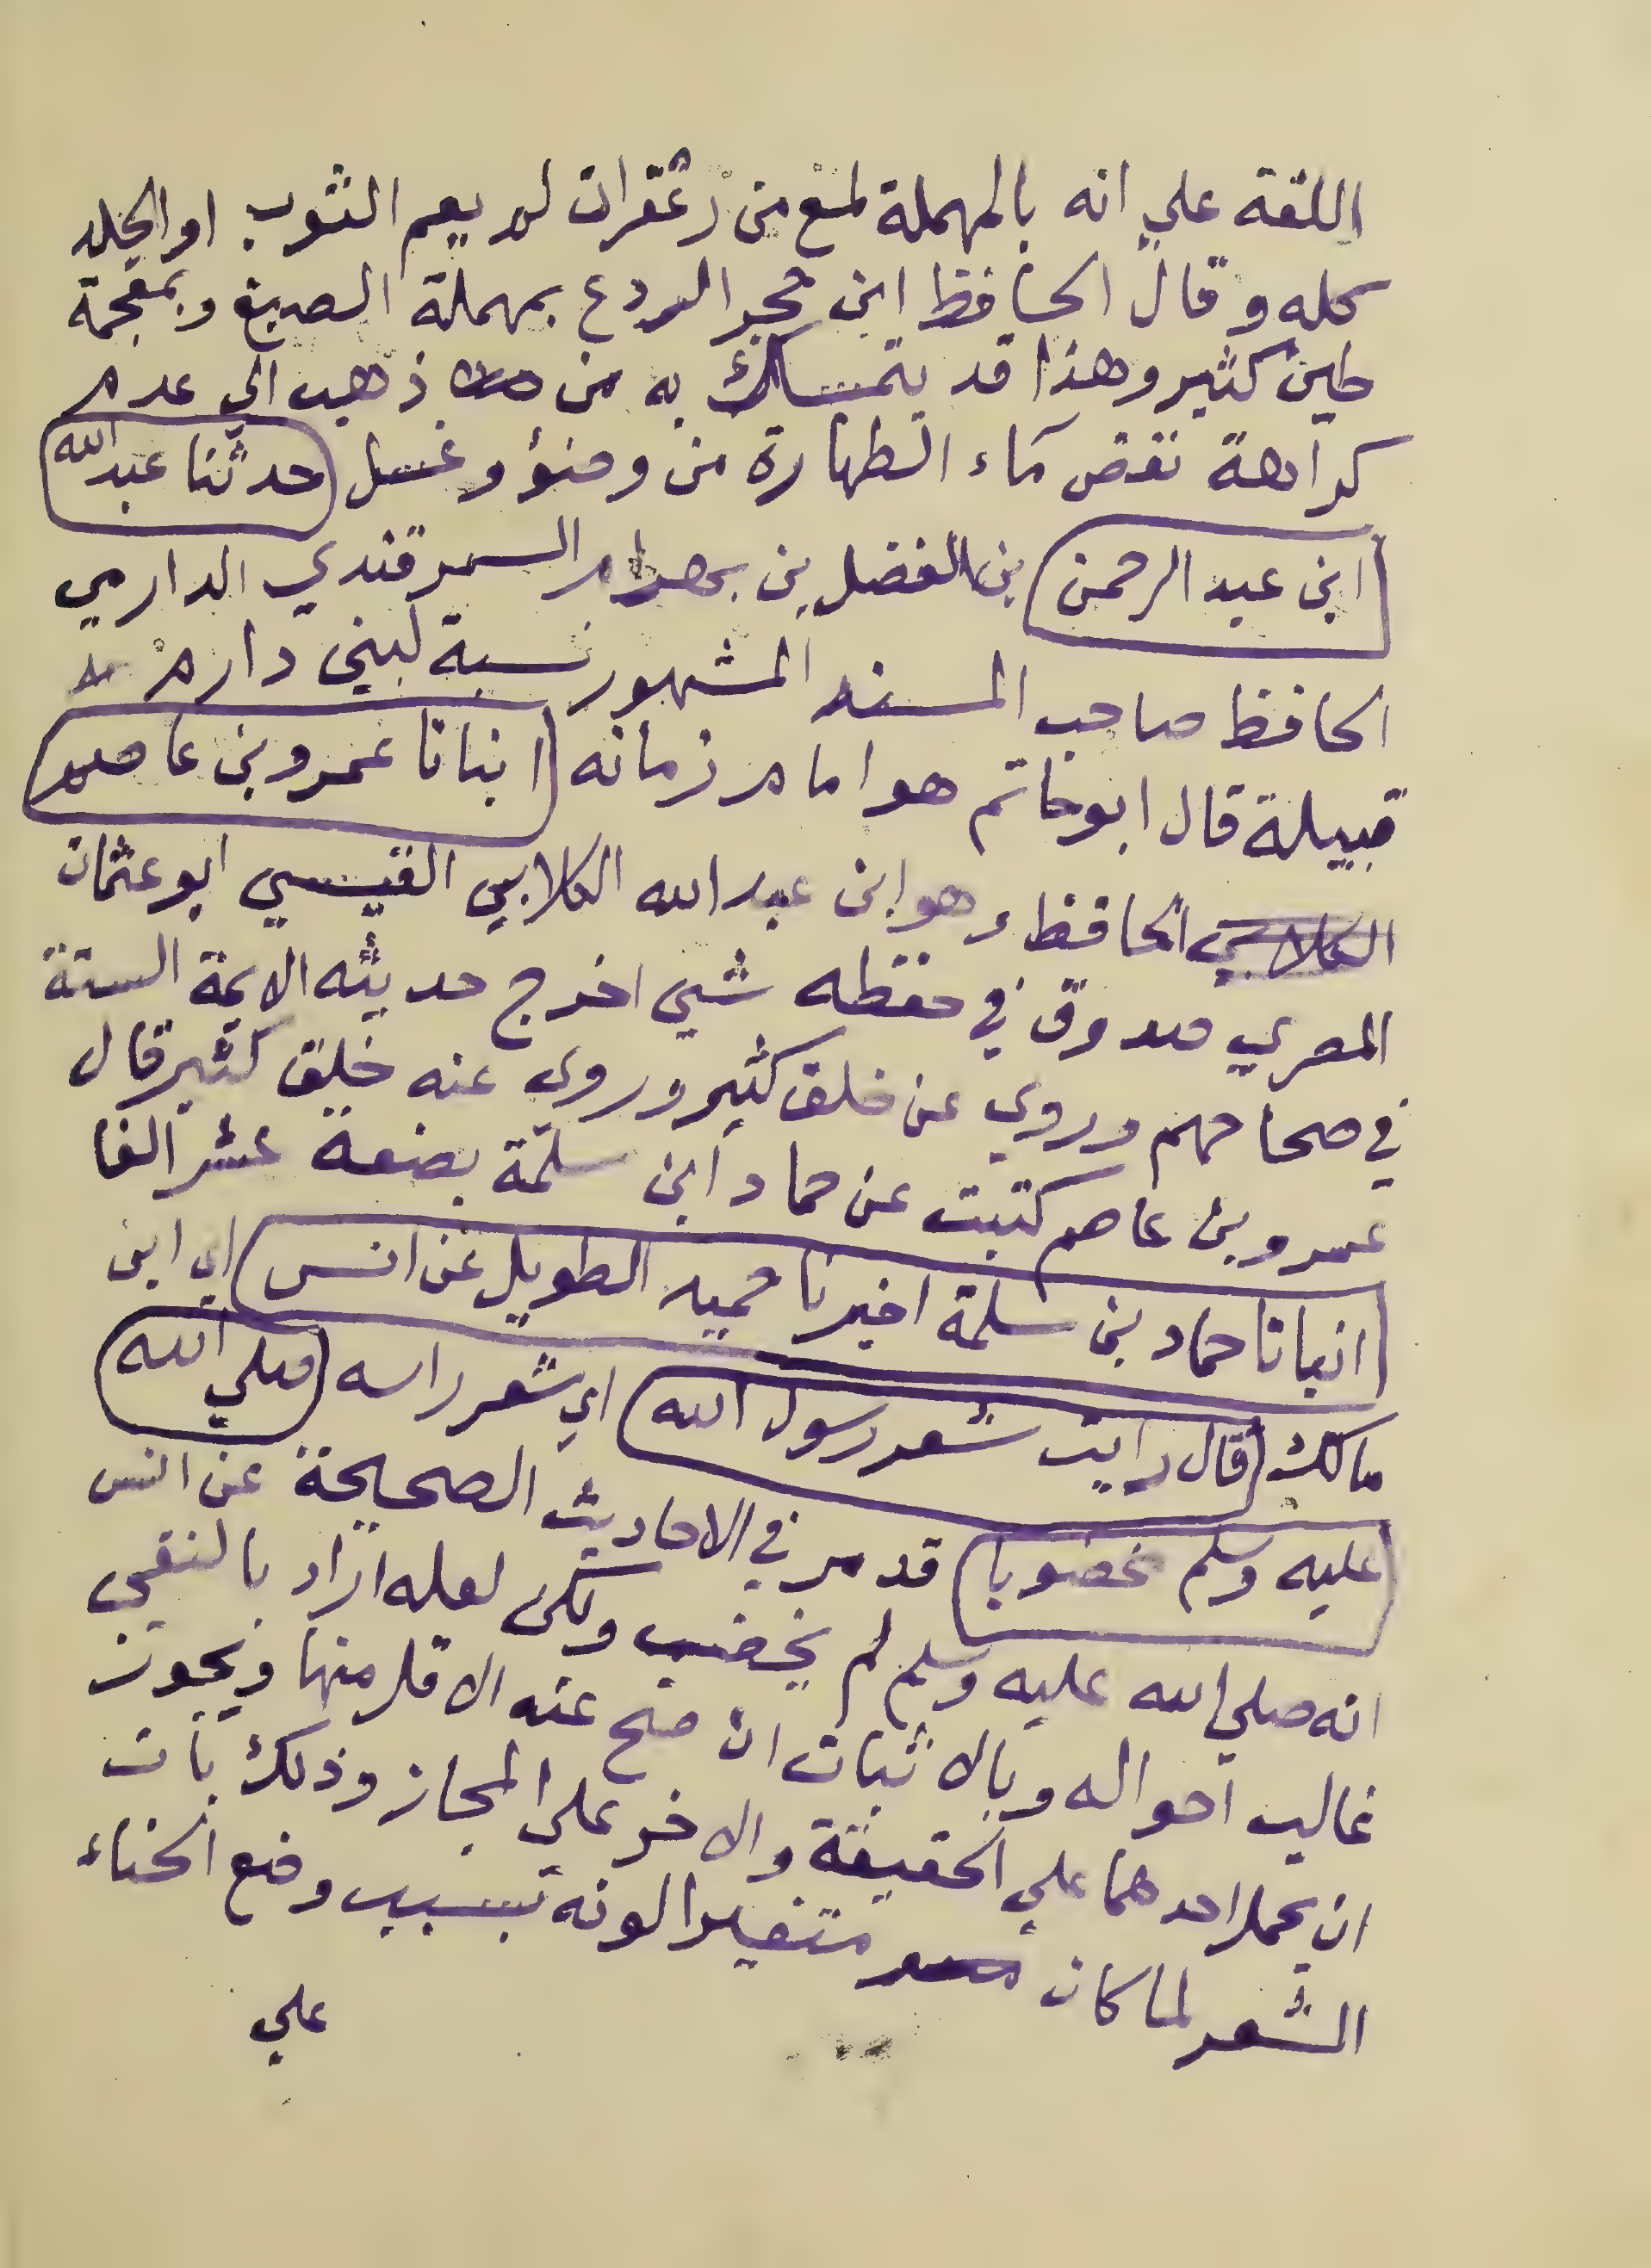 اللغة علي انه بالمهملة لمع من زعفران لم يعم الثوب او الجلد
كله وقال الحافظ ابن حجر الردع بمهملة الصبغ وبمعجمة
طين كثير وهذا قد يتمسك به من ذهب الي عدم
كراهة نفض ماء الطهارة من وضؤ وغسل حدثنا عبد الله
ابن عبد الرحمن بن الفضل بن بهرام السمرقندي الدارمي
الحافظ صاحب المسند المشهور نسبة لبني دارم
قبيلة قال ابو حاتم هو امام زمانه انبانا عمرو بن عاصم
الكلابي الحافظ وهو ابن عبد الله الكلابي القيسي ابو عثمان
المصري صدوق في حفظه شي اخرج حديثه الايمة الستة
في صحاحهم وروي عن خلق كثير وروى عنه خلق كثير قال
عمرو بن عاصم كتبت عن حماد ابن سلمة بضعة عشر الفا
انبانا حماد بن سلمة اخبرنا حميد الطويل عن انس اي ابن
مالك قال رايت شعر رسول الله اي شعر راسه صلي الله
عليه وسلم مخضوبا قد مر في الاحاديث الصحيحة عن انس
انه صلي الله عليه وسلم لم يخضب ولكن لعله اراد بالنفي
غالب احواله وبالاثبات ان صح عنه الاقل منها ويجوز
ان يحمل احدهما علي الحقيقة والاخر علي المجاز وذلك بان
الشعر لما كان متغيرا لونه بسبب وضع الحناء
علي